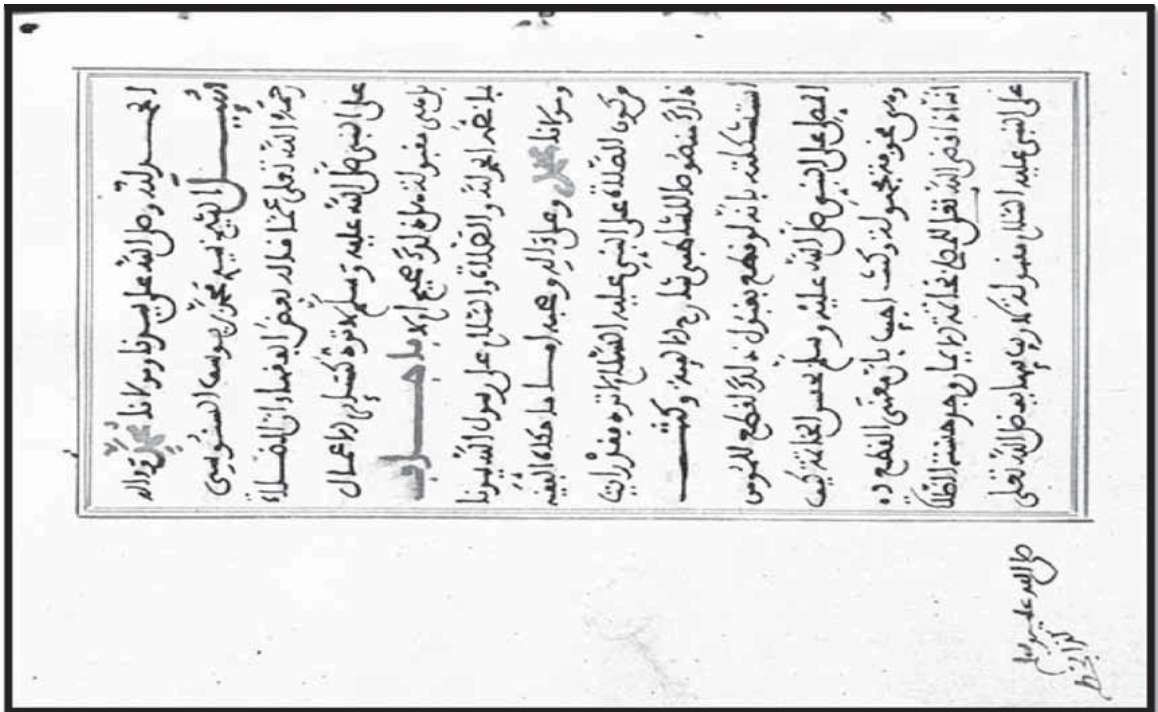 الحمد لله وصلى الله على سيدنا ومولانا محمد وءاله
سئل الشيخ سيدي محمد بن يوسف السنوسي
رحمه الله تعلى عما قاله بعض الفقهاء ان الصلاة
على النبي صلى الله عليه وسلم لا تره كسائر الاعمال
بل هي مقبولة هل ذلك صحيح ام لا فاجاب
بما نصه الحمد لله والصلاة والسلام على رسول الله سيدنا
ومولانا محمد وعلى ءاله وصحبه اما ما حكاه الفقيه
من كون الصلاة على النبي عليه السلام لا تره فقد رايت
ذلك منصوصا للشاطبي شارح الالفية وكنت
استشكلته بانه لو قطع بقبول ذلك لقطع للموس
المصلي على النبي صلى الله عليه وسلم بحسن الخاتمة كيف
وهي مجهولة وكنت اجيب بان معنى القطع ده
انه اذا قضى الله تعلى للمصلي خاتمة الايمان وجد حسنة الصلاة
على النبي عليه السلام مقبولة لا ريب فيها بفضل الله تعلى
صلى الله عليه وسلم
كذا بخط